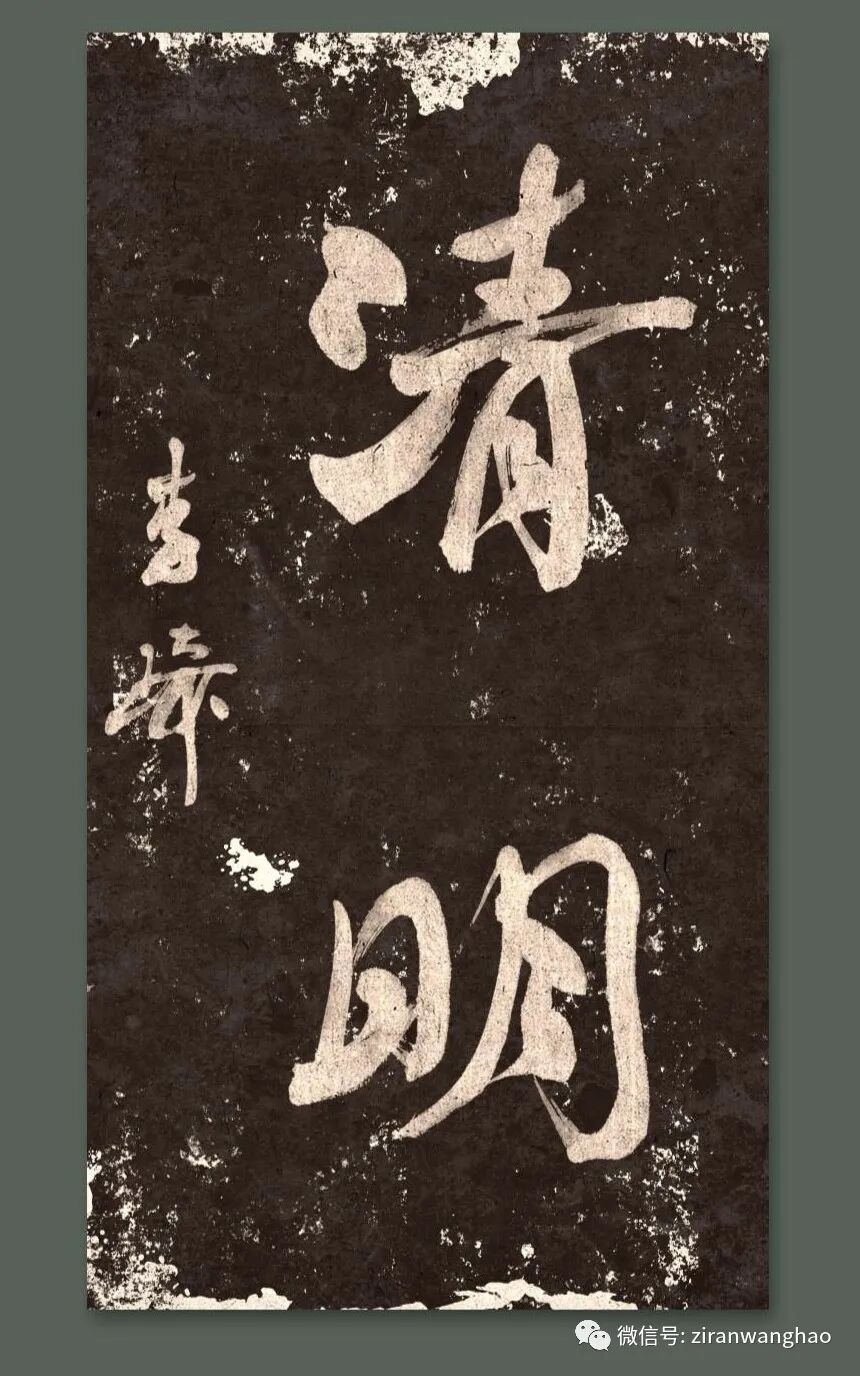 清明
微信号: ziranwanghao